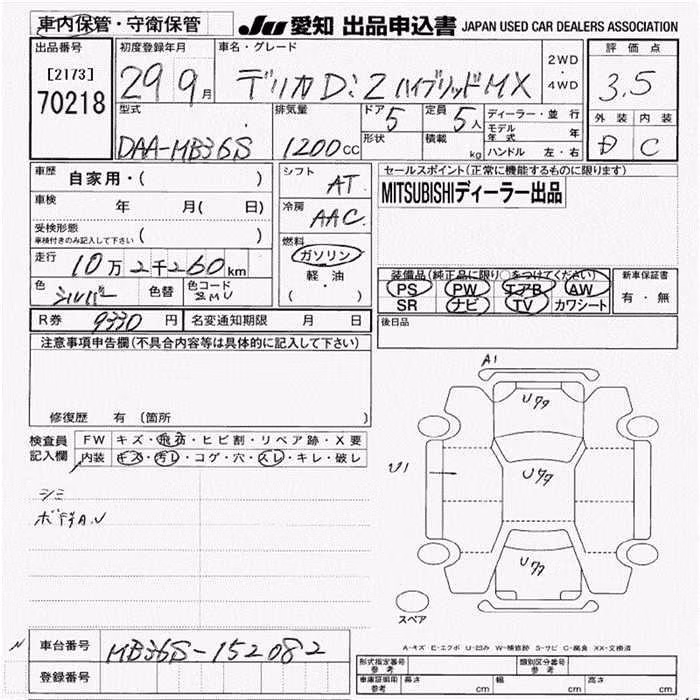 車内保管・守衛保管 JU 愛知 出品申込書 JAPAN USED CAR DEALERS ASSOCIATION
出品番号 初度登録年月 車名・グレード 2WD ・ 4WD 評価点
[2173] 70218 29 9月 デリカD:2 ハイブリッドMX 3.5
型式 排気量 ドア 5 定員 5人 ディーラー・並行 外装 内装
DAA-MB36S 1200cc 形状 積載 kg モデル年式 年 D C
ハンドル 左・右
車歴 自家用・( ) シフト AT セールスポイント(正常に機能するものに限ります)
車検 年 月( 日) 冷房 AAC MITSUBISHIディーラー出品
受検形態 車検付きのみ記入して下さい ( ) 燃料 ガソリン
走行 10万2千260km 軽・油 装備品(純正品に限り○をつけてください) 新車保証書
色 シルバー 色替 色コード ZMU ( ) PS PW エアB AW 有・無
SR ナビ TV カワシート
R券 9330円 名変通知期限 月 日 後日品
注意事項申告欄(不具合内容等は具体的に記入して下さい)
A1
Uワワ
修復歴 有 (箇所 )
検査員記入欄 FW キズ・飛石・ヒビ割・リペア跡・X要
内装 キズ・汚レ・コゲ・穴・スレ・キレ・破レ
U1 Uワワ
シミ
Uワワ
スペア
A-キズ E-エクボ U-凹み W-補修跡 S-サビ C-腐食 XX-交換済
車台番号 MB36S-152082
登録番号
形式指定番号 参考 類別区分番号 参考
車庫証明用 参考 長さ cm 幅 cm 高さ cm